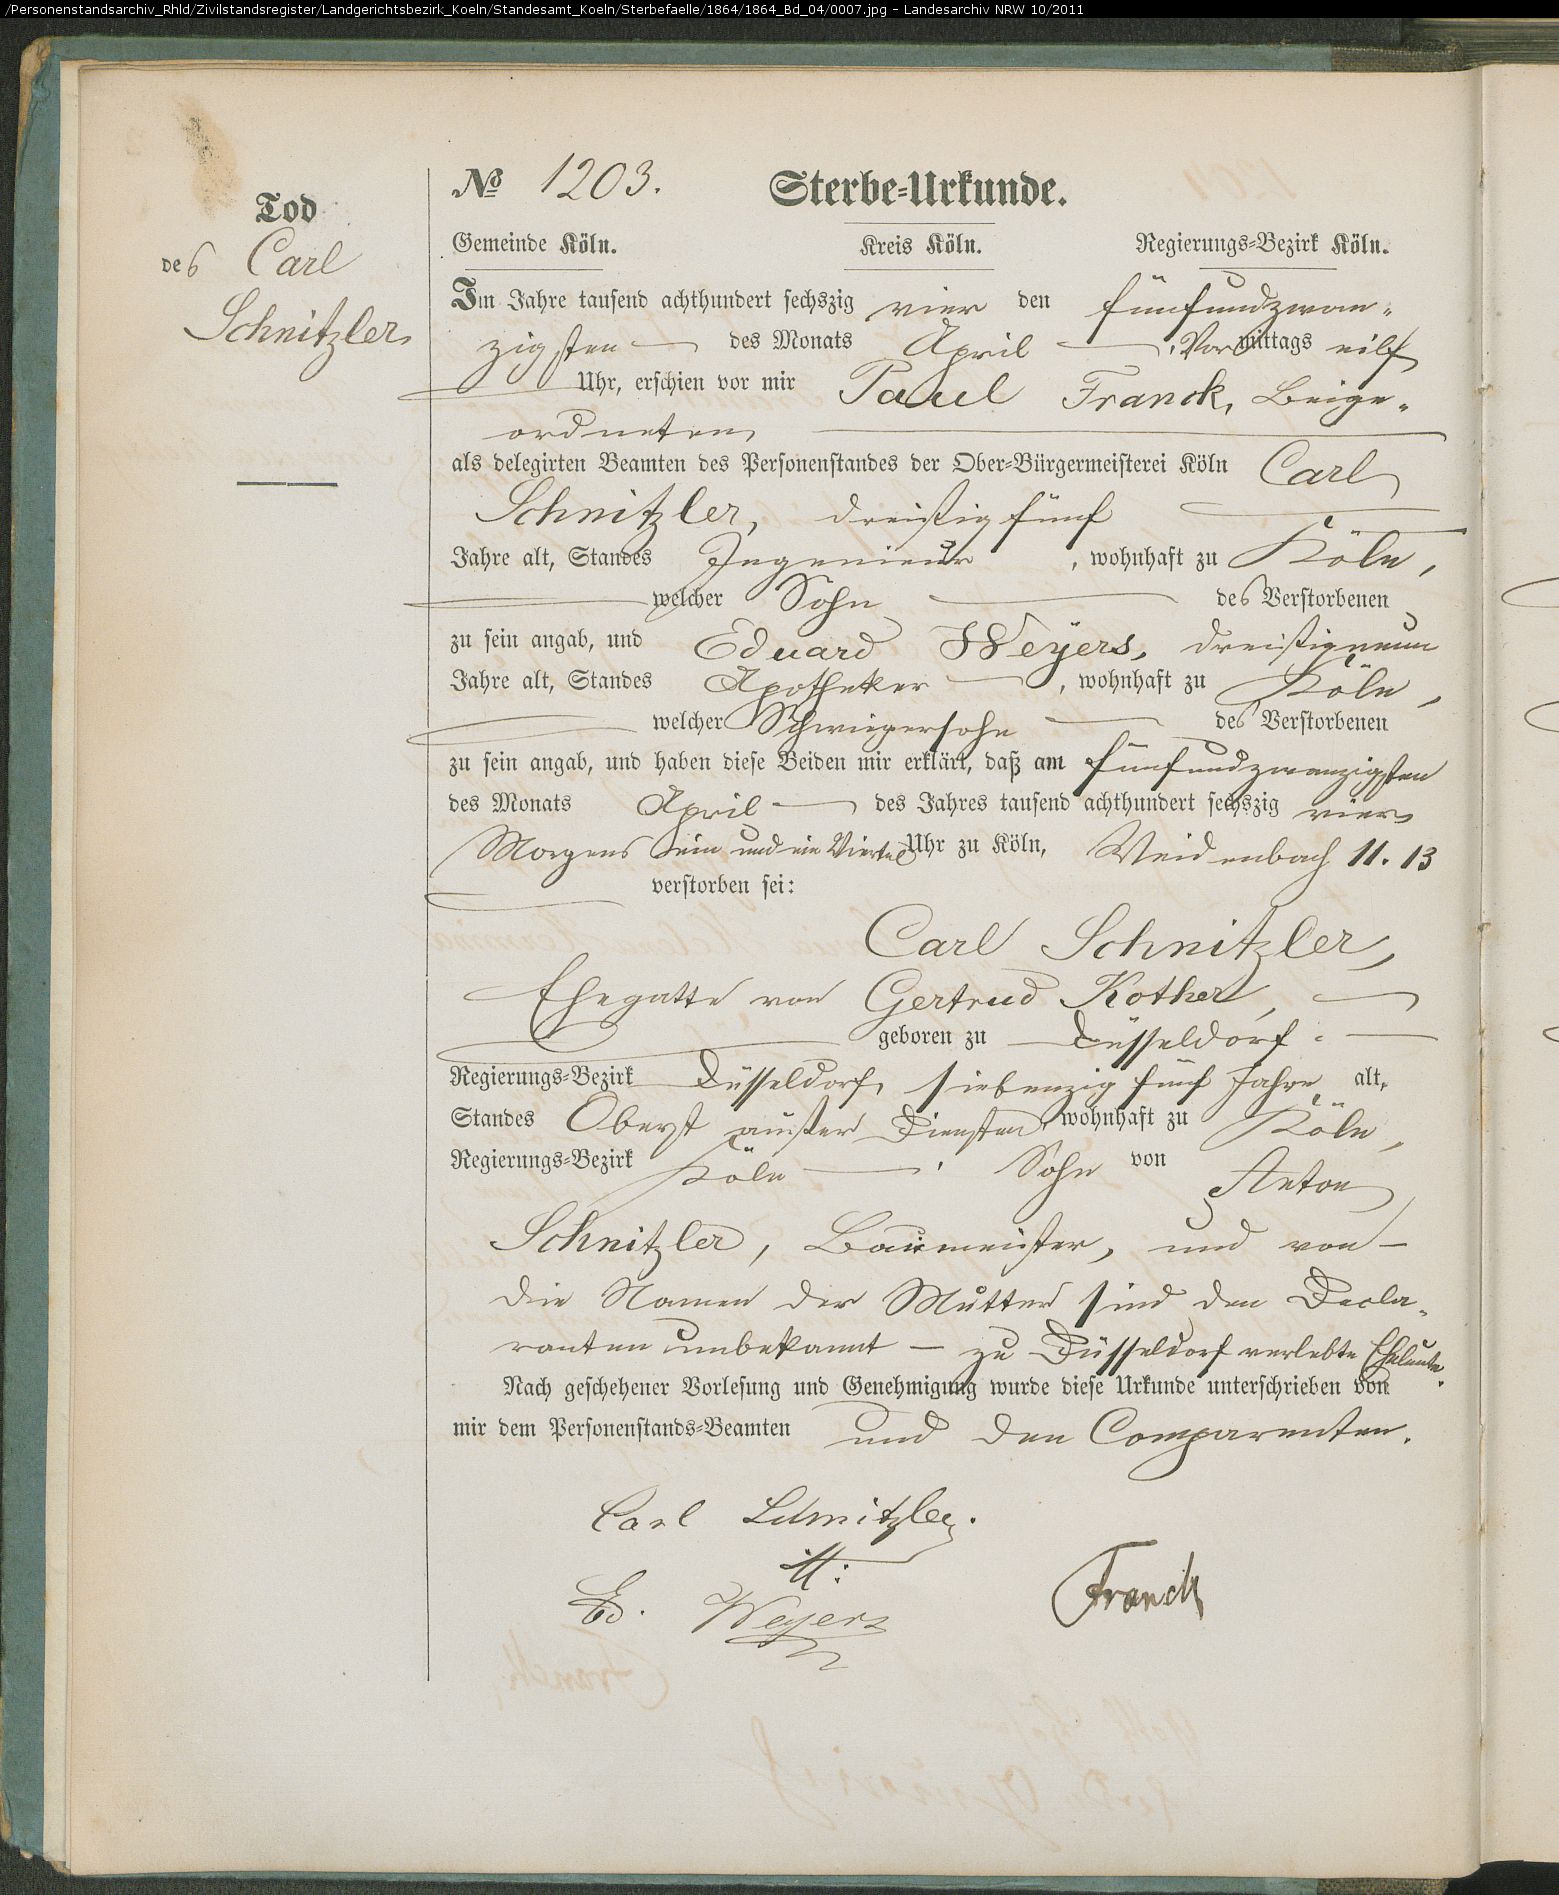 /Personenstandsarchiv_Rhld/Zivilstandsregister/Landgerichtsbezirk_Koeln/Standesamt_Koeln/Sterbefaelle/1864/1864_Bd_04/0007.jpg - Landesarchiv NRW 10/2011
Tod
des Carl
Schnitzler
No 1203. Sterbe-Urkunde.
Gemeinde Köln. Kreis Köln. Regierungs-Bezirk Köln.
Im Jahre tausend achthundert sechszig vier den fünfundzwan-
zigsten des Monats April, Vormittags eilf
Uhr, erschien vor mir Paul Franck, Beige-
ordneten
als delegirten Beamten des Personenstandes der Ober-Bürgermeisterei Köln Carl
Schnitzler, dreißig fünf
Jahre alt, Standes Ingenieur, wohnhaft zu Köln,
welcher Sohn des Verstorbenen
zu sein angab, und Eduard Weyers, dreißig neun
Jahre alt, Standes Apotheker, wohnhaft zu Köln,
welcher Schwiegersohn des Verstorbenen
zu sein angab, und haben diese Beiden mir erklärt, daß am fünfundzwanzigsten
des Monats April des Jahres tausend achthundert sechszig vier
Morgens ein und ein Viertel Uhr zu Köln, Weidenbach 11.13
verstorben sei:
Carl Schnitzler,
Ehegatte von Gertrud Kother,
geboren zu Düsseldorf
Regierungs-Bezirk Düsseldorf, siebenzig fünf Jahre alt,
Standes Oberst außer Diensten, wohnhaft zu Köln,
Regierungs-Bezirk Köln, Sohn von Anton
Schnitzler, Baumeister, und von -
die Namen der Mutter sind den Decla-
ranten unbekannt - zu Düsseldorf verlebte Eheleute.
Nach geschehener Vorlesung und Genehmigung wurde diese Urkunde unterschrieben von
mir dem Personenstands-Beamten und den Comparenten.
Carl Schnitzler.
Ed. Weyers
Franck